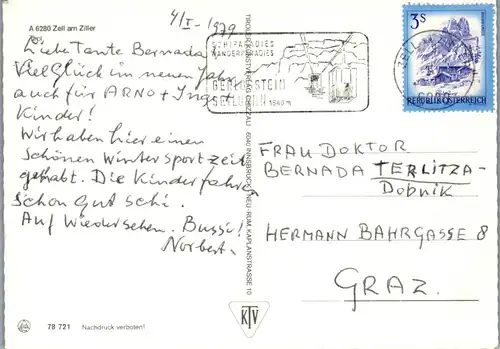 A 6280 Zell am Ziller
4/I - 1979
Liebe Tante Bernada
Viel Glück im neuen Jahr
auch für ARNO + Ingst
Kinder!
Wir haben hier einen
schönen Wintersportzeit
gehabt. Die Kinder fahre
schon gut schi.
Auf Wiedersehen. Bussi!
Norbert.
SCHIPARADIES
WANDERPARADIES
GERLOSSTEIN
SEILBAHN 1640 m
3 S
REPUBLIK ÖSTERREICH
TIROLER KUNSTVERLAG CHIZZALI 6040 INNSBRUCK-NEU-RUM, KAPLANSTRASSE 10
FRAU DOKTOR
BERNADA TERLITZA-
Dobnik
HERMANN BAHRGASSE 8
GRAZ.
KTV
78 721 Nachdruck verboten!